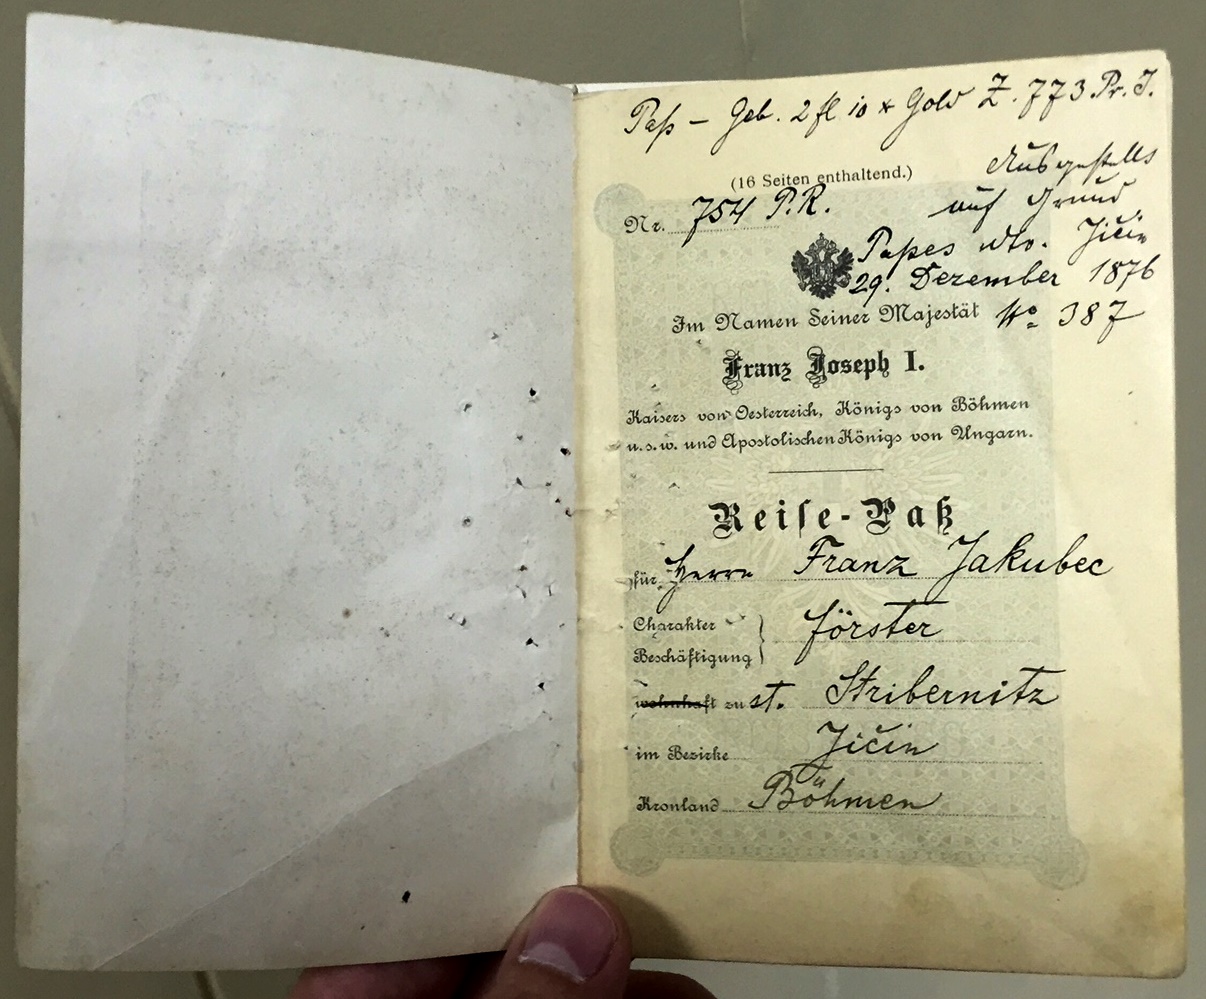 Paß – Geb. 2 fl 10 x Gold Z. 773 Pr. J.
(16 Seiten enthaltend.)
Ausgestellt
Nr. 754 P.R.
auf Grund
Paßes dto. Jičin
29. Dezember 1876
No 387
Im Namen Seiner Majestät
Franz Joseph I.
Kaisers von Oesterreich, Königs von Böhmen
u. s. w. und Apostolischen Königs von Ungarn.
Reise-Paß
für Herrn Franz Jakubec
Charakter
Beschäftigung } Förster
wohnhaft zu st. Stribernitz
im Bezirke Jičin
Kronland Böhmen